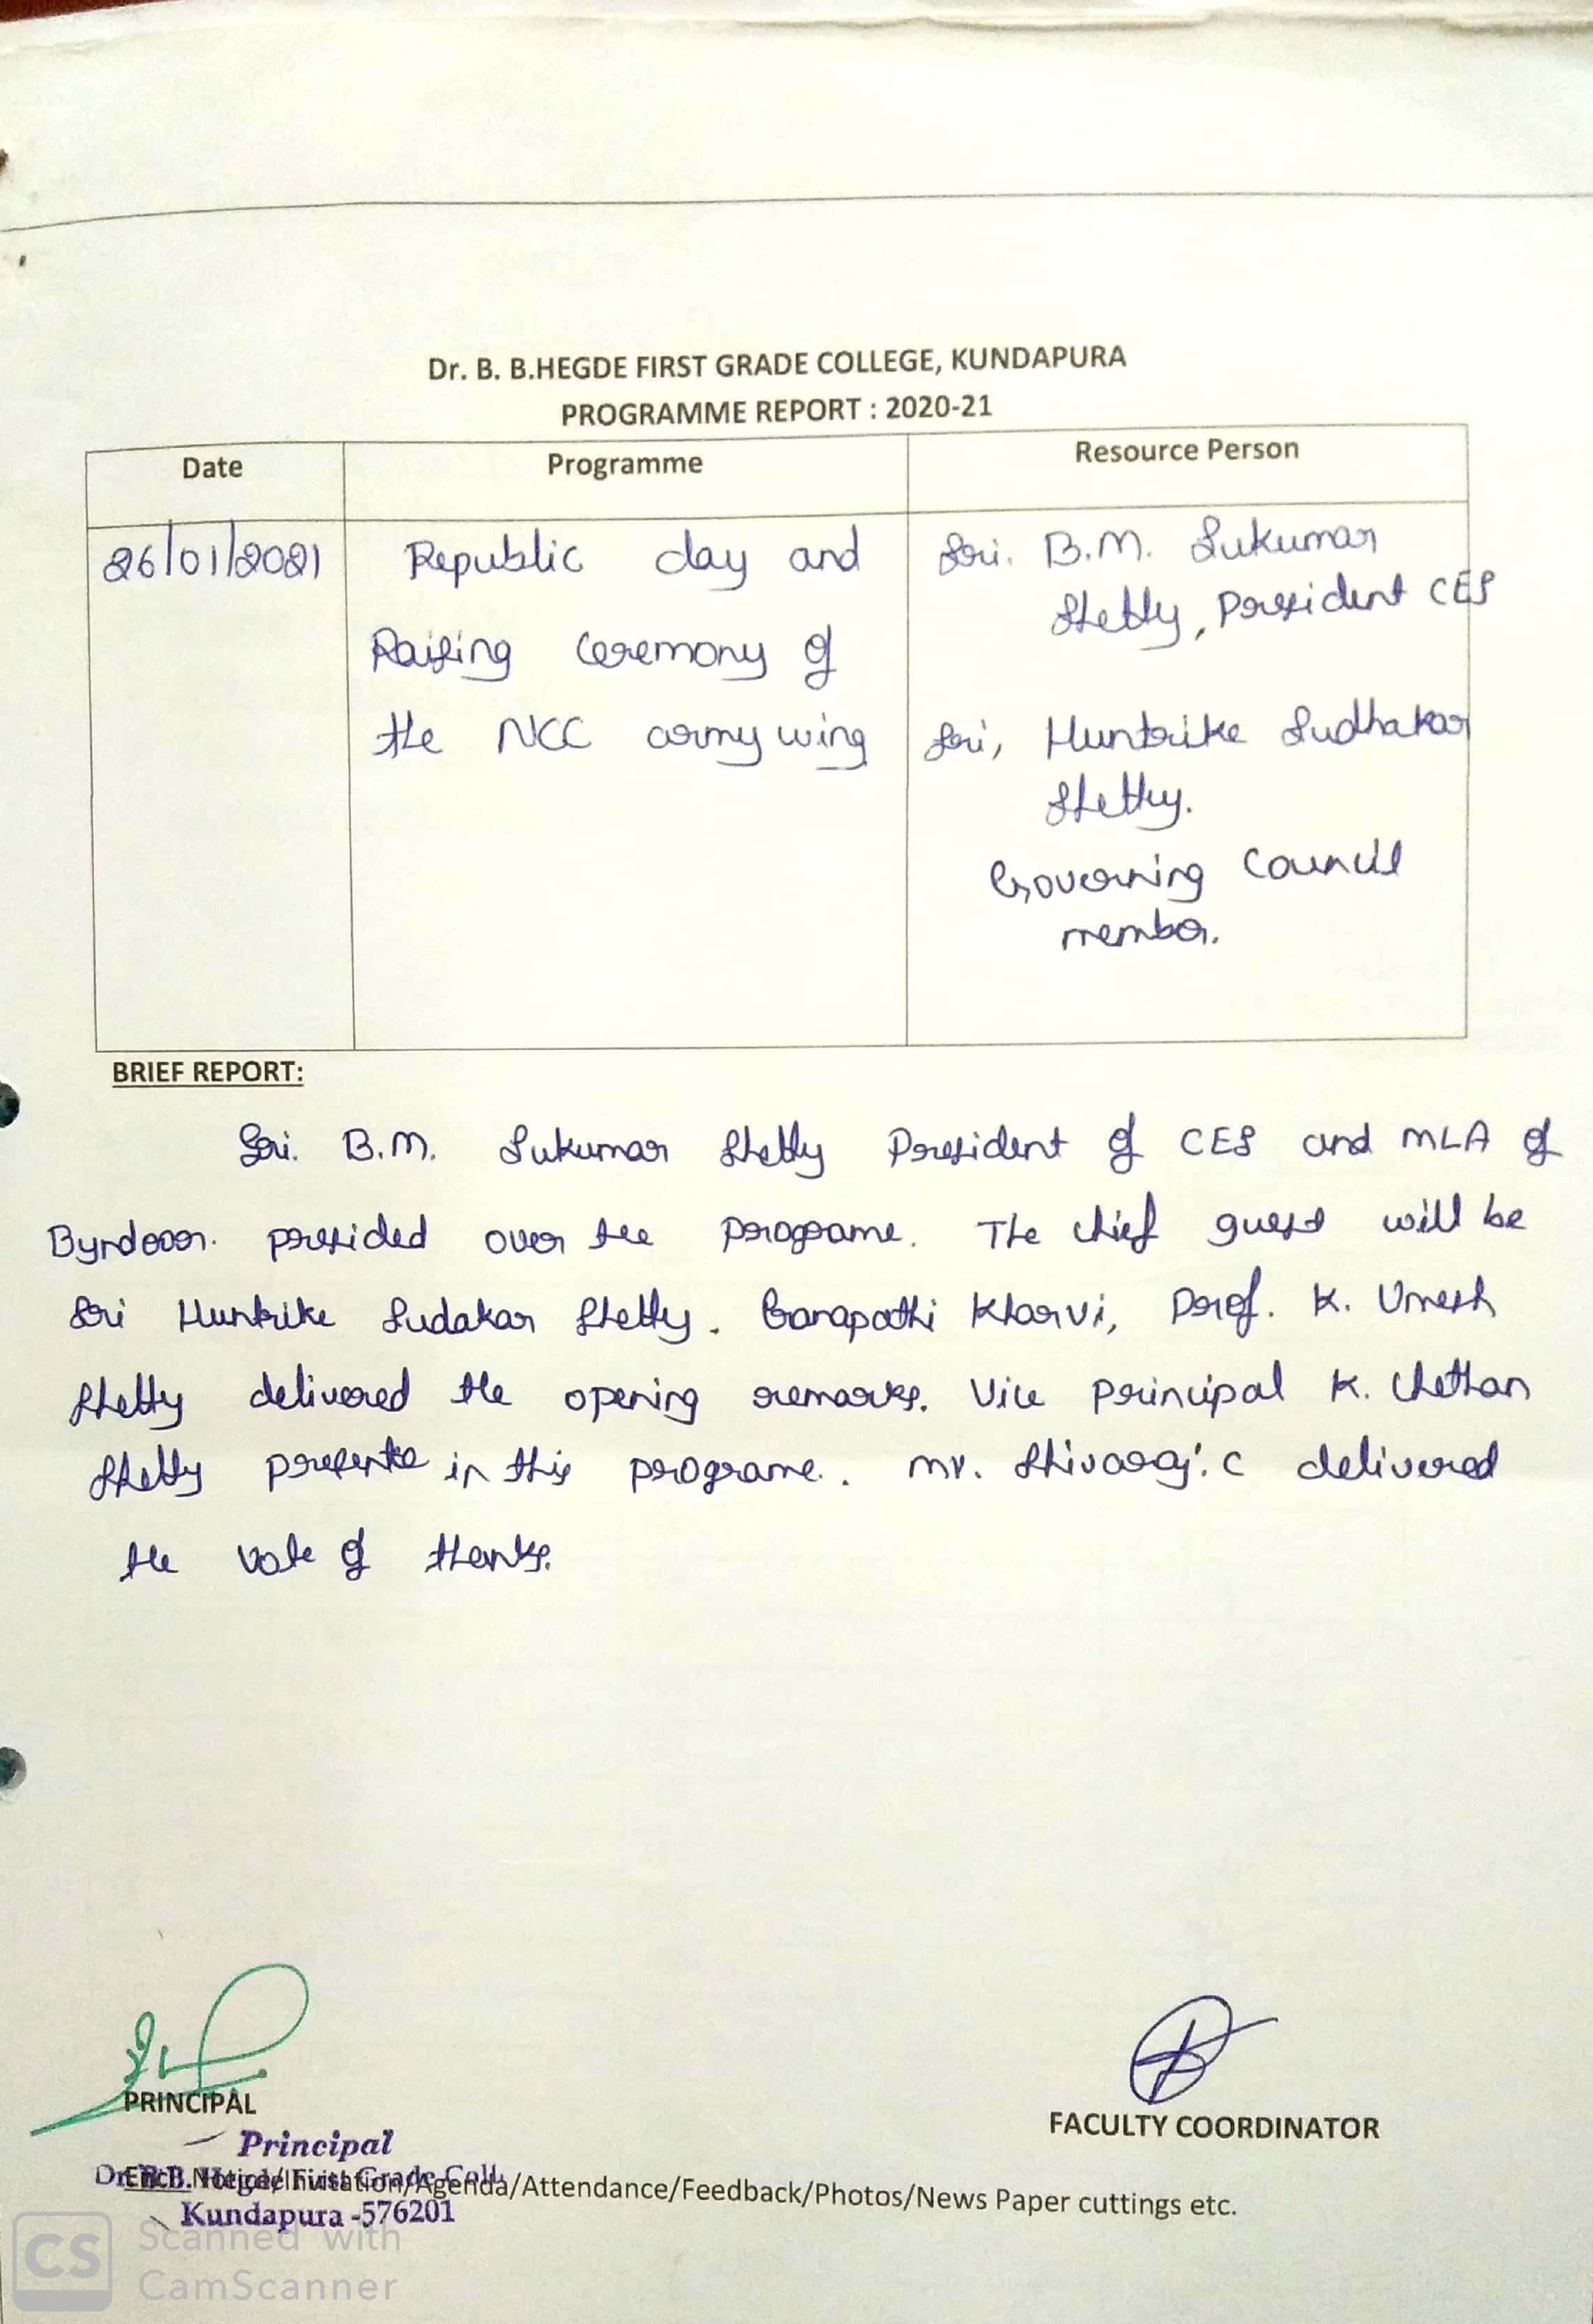 Dr. B. B.HEGDE FIRST GRADE COLLEGE, KUNDAPURA
PROGRAMME REPORT : 2020-21
Date Programme Resource Person
26/01/2021
Republic day and
Raising Ceremony of
the NCC army wing
Sri. B.M. Sukumar
Shetty, President CES
Sri, Huntrike Sudhakar
Shetty.
Governing Council
member.
BRIEF REPORT:
Sri. B.M. Sukumar Shetty President of CES and MLA of
presided over the programe. The chief guest will be
Sri Huntrike Sudakar Shetty. Ganapathi Kharvi, Prof. K. Umesh
Shetty delivered the opening remarks. Vice principal K. Chethan
Shetty in this programe. Mr. Shivaraj. C delivered
the vote of thanks.
PRINCIPAL
FACULTY COORDINATOR
Principal
Dr. B.B. Hegde First Grade Coll.
Encl: Notice/Invitation/Agenda/Attendance/Feedback/Photos/News Paper cuttings etc.
Kundapura -576201
CS Scanned with
CamScanner